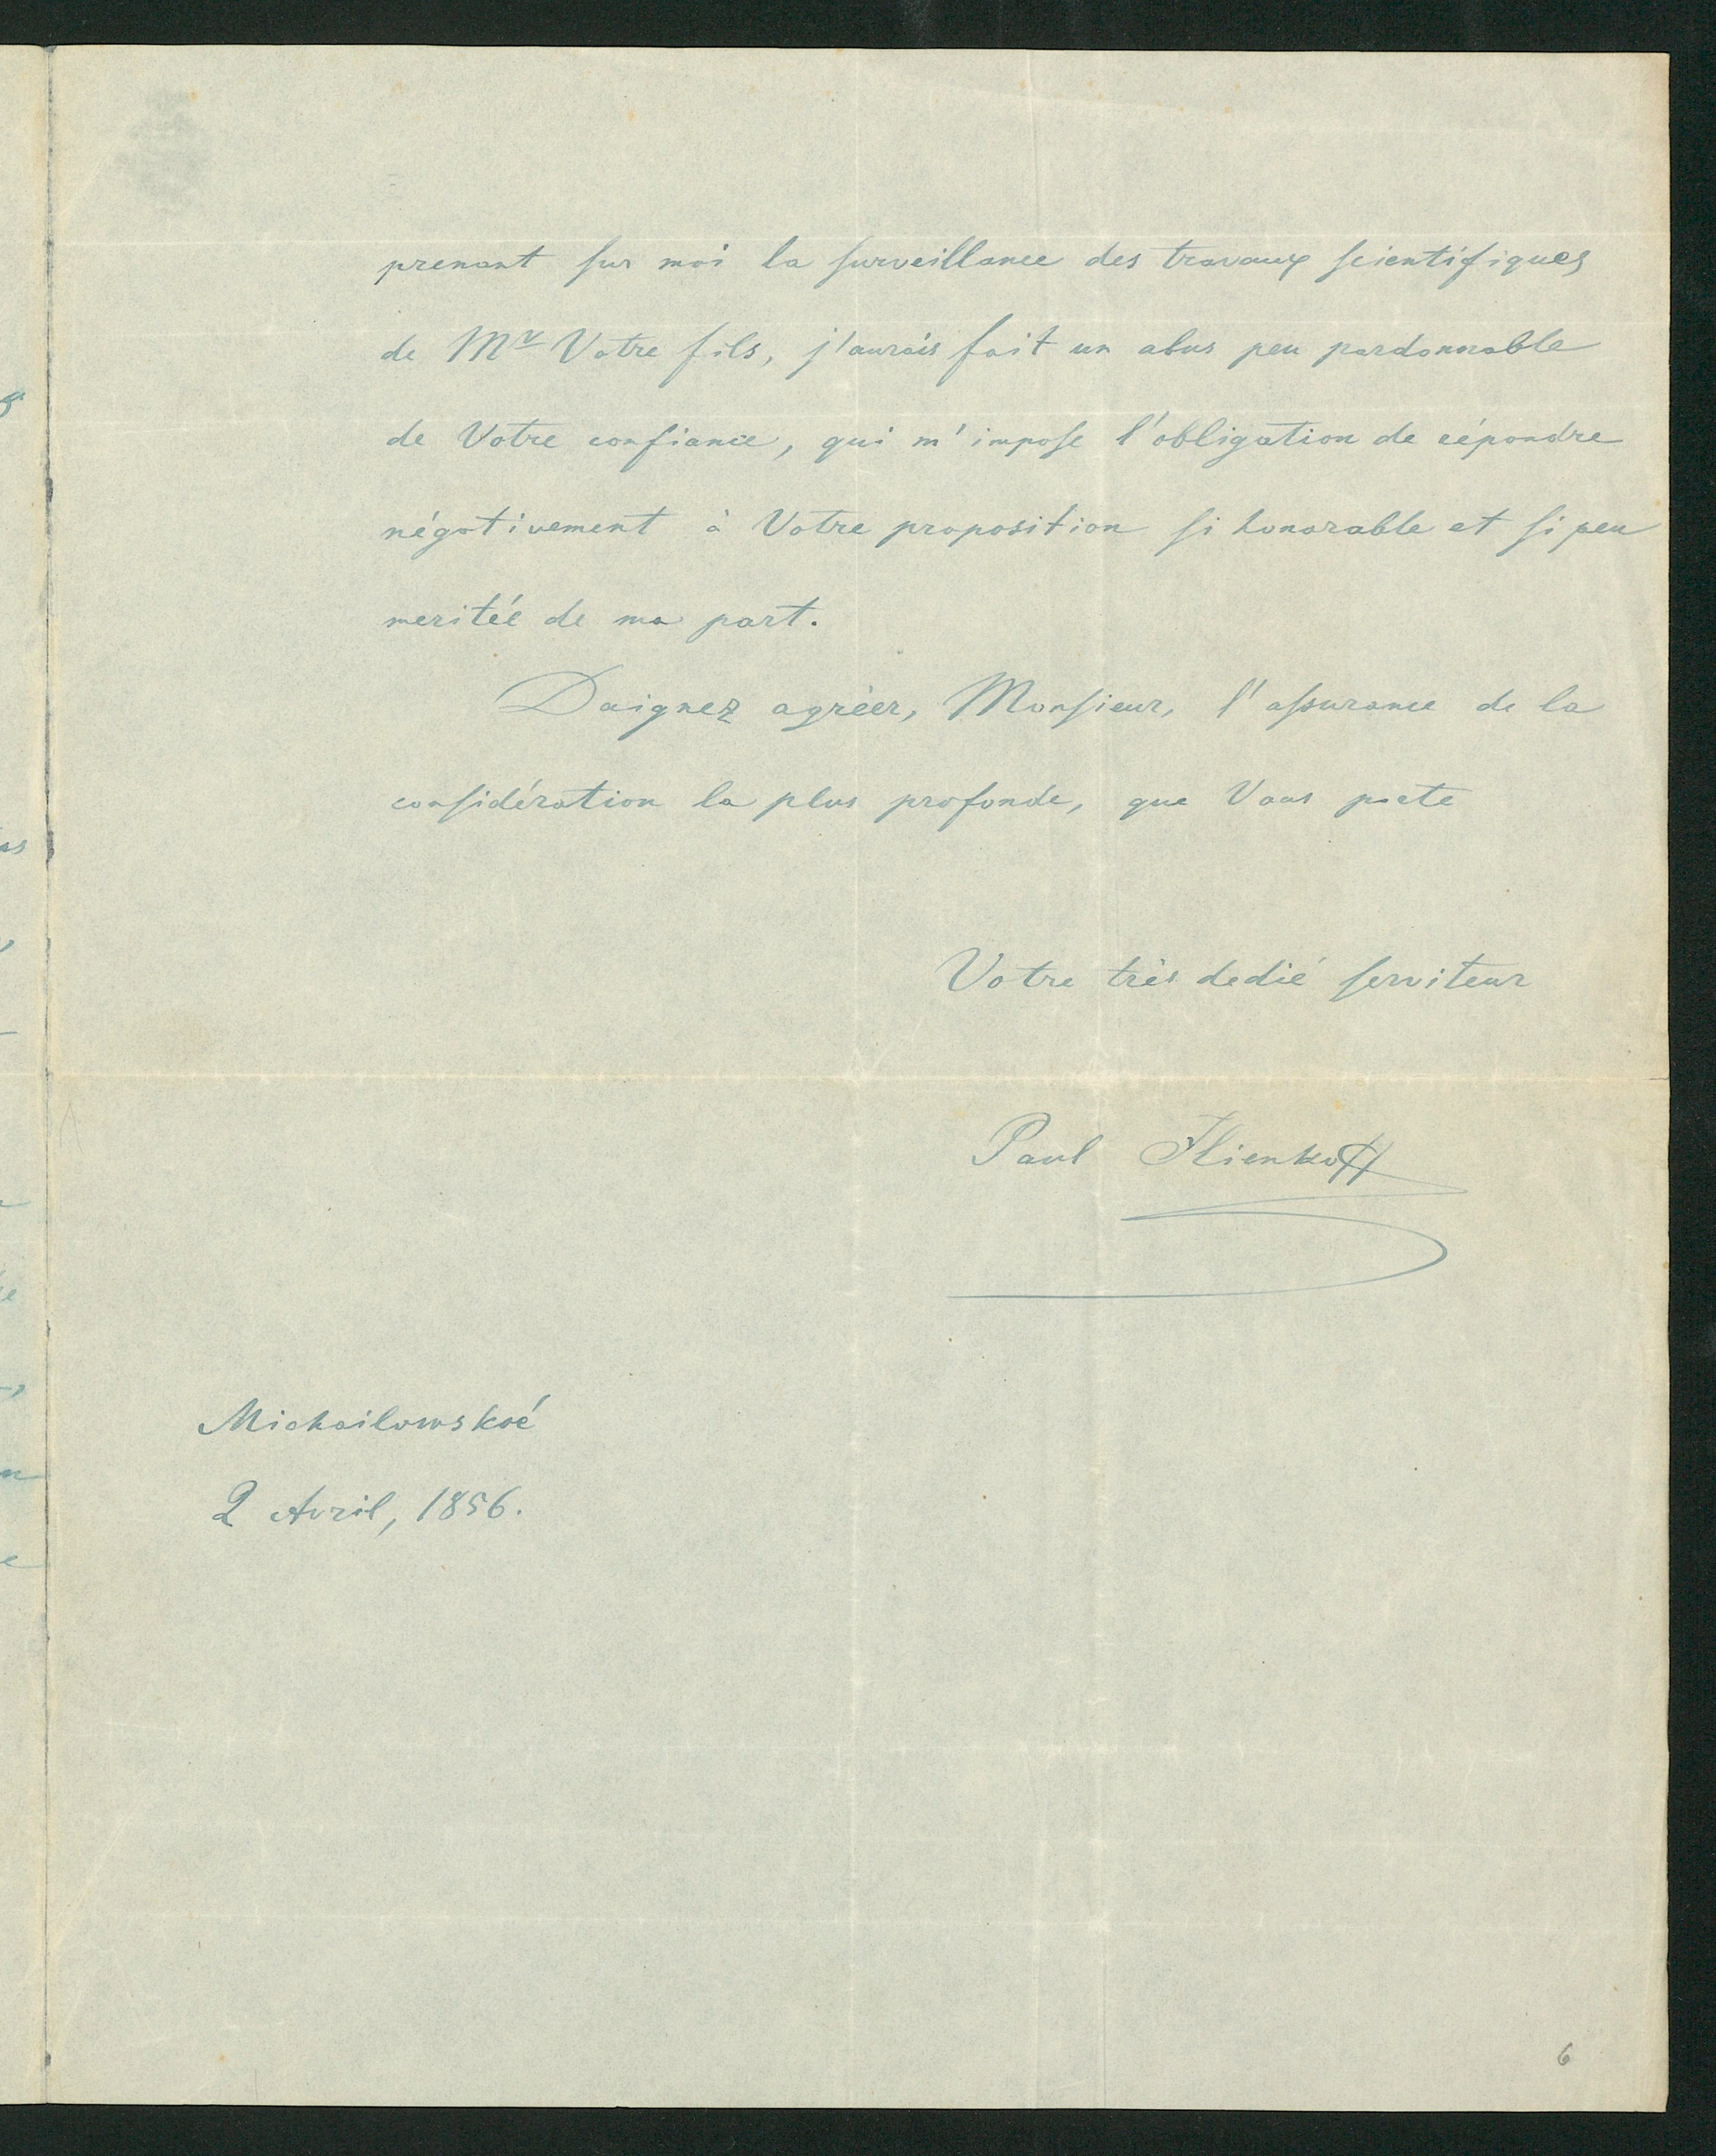 prenant sur moi la surveillance des travaux scientifiques
de Mr Votre fils, j'aurais fait un abus peu pardonnable
de Votre confiance, qui m'impose l'obligation de répondre
négativement à Votre proposition si honorable et si peu
meritée de ma part.
Daignez agréer, Monsieur, l'assurance de la
considération la plus profonde, que Vous porte
Votre très dedié serviteur
Paul Ilienkoff
Michailowskoé
2 Avril, 1856.
6